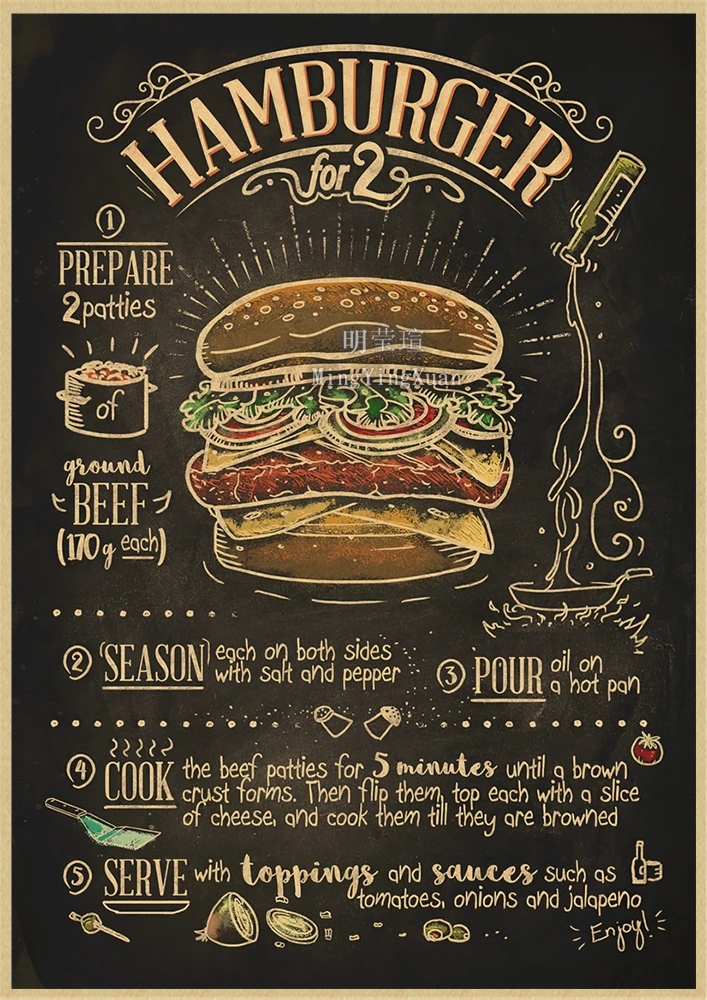 HAMBURGER
for 2
1
PREPARE
2 patties
of
ground
BEEF
(170g each)
明莹瑄
MingYingXuan
2 SEASON each on both sides
with salt and pepper
3 POUR oil on
a hot pan
4 COOK the beef patties for 5 minutes until a brown
crust forms. Then flip them, top each with a slice
of cheese, and cook them till they are browned
5 SERVE with toppings and sauces such as
tomatoes, onions and jalapeno
Enjoy!